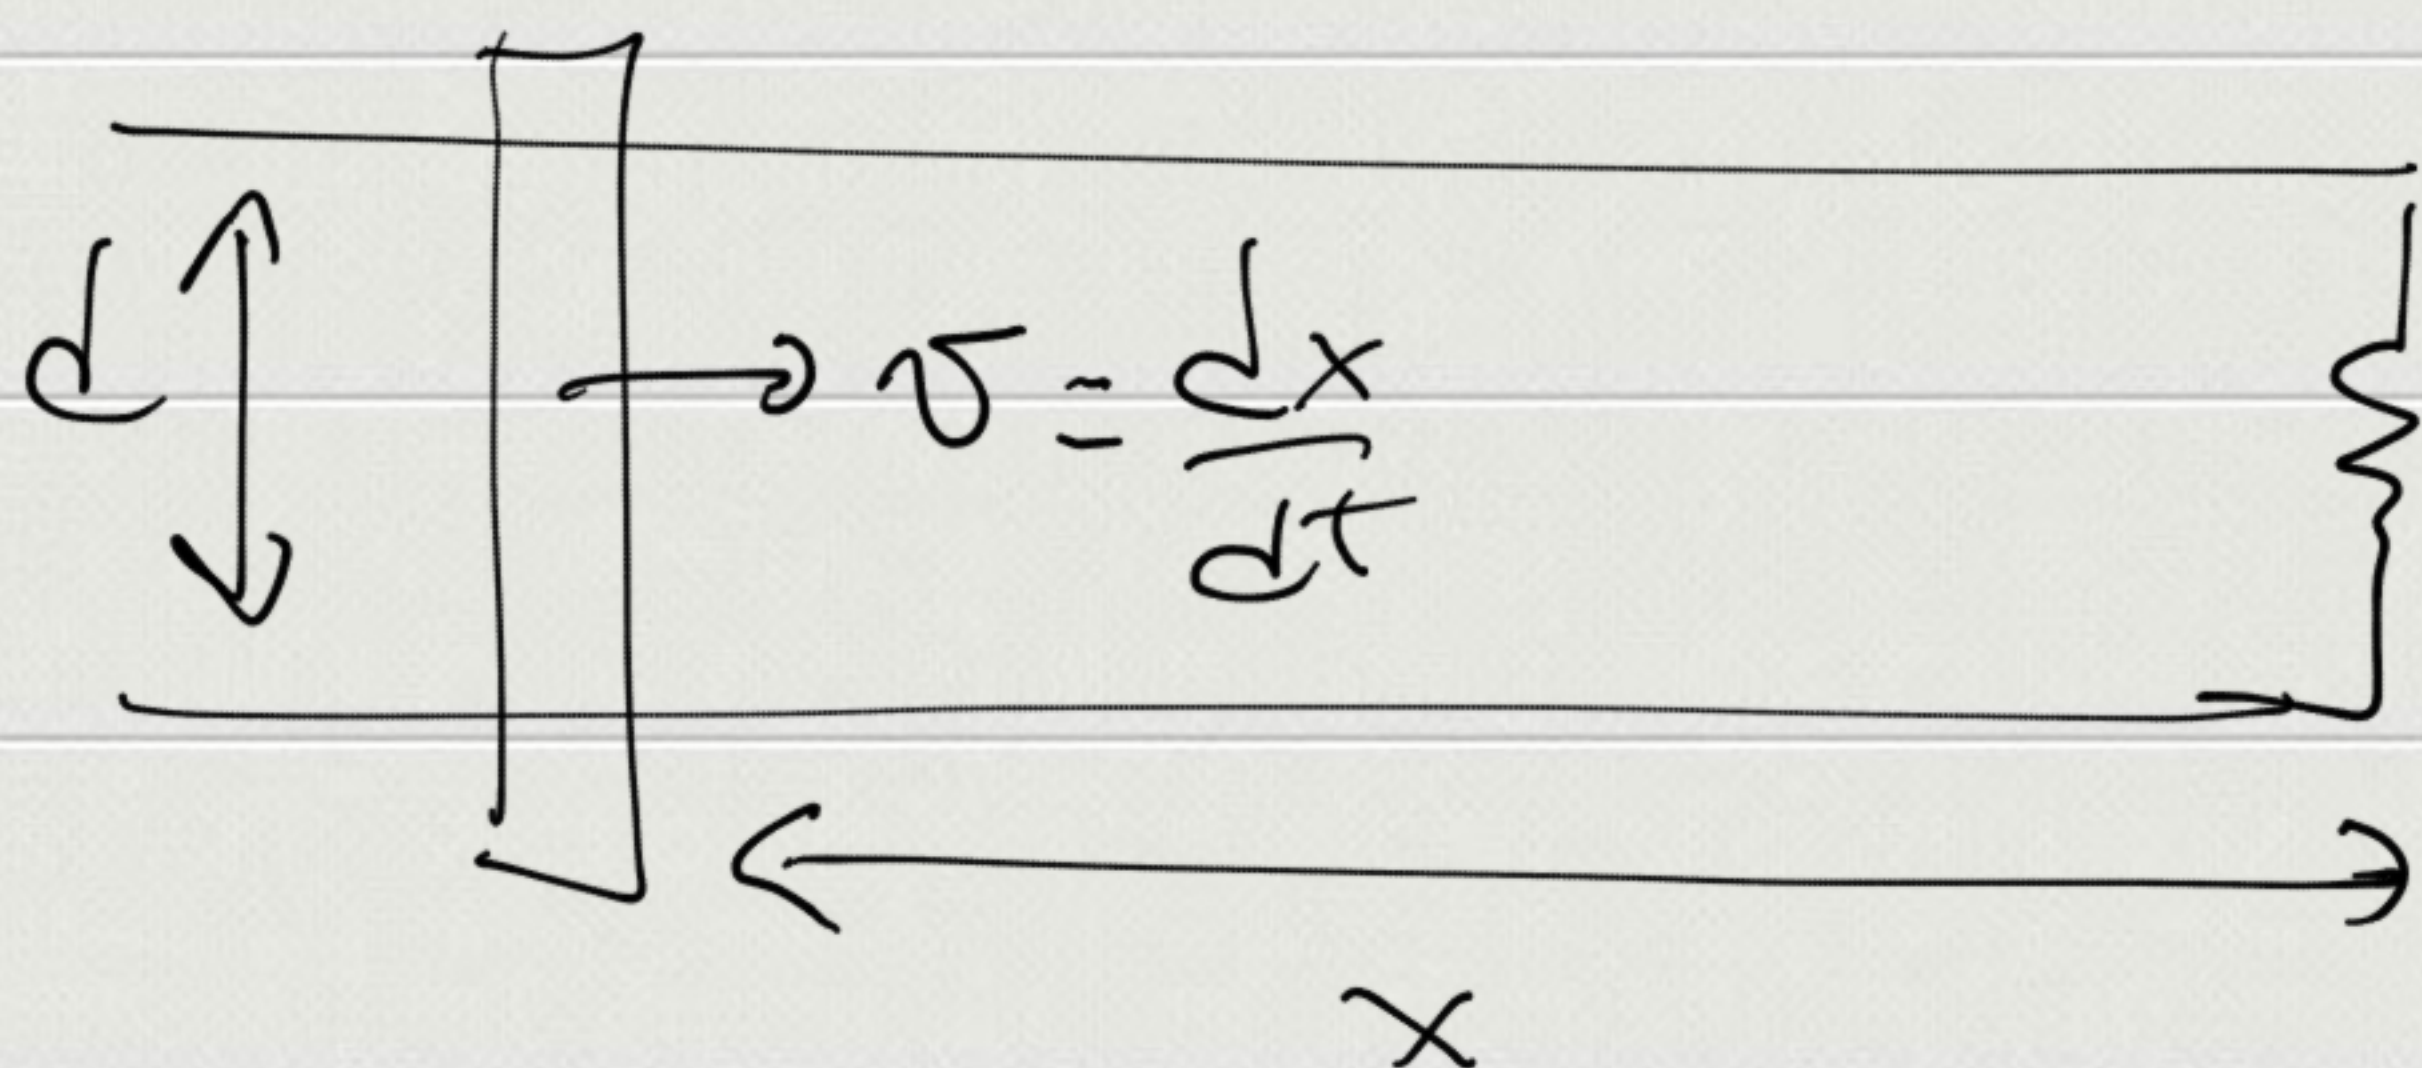 d
v = dx/dt
x